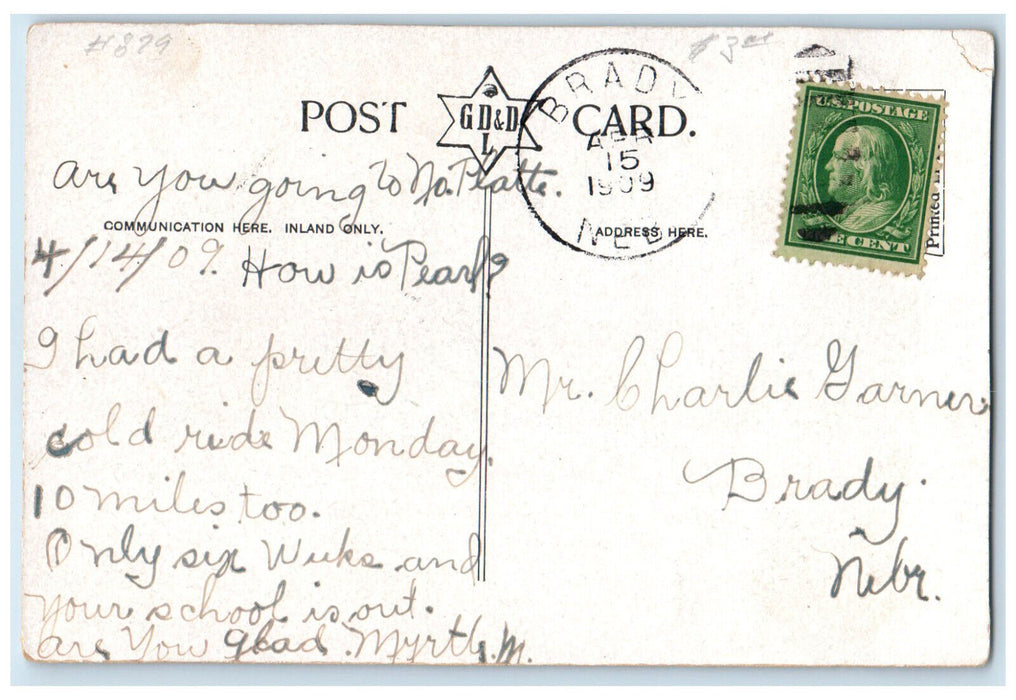 #879
$3
POST CARD.
G D & D
L
BRADY
APR
15
1909
NEB
U.S. POSTAGE
ONE CENT
Printed in
Are you going to No. Platte.
COMMUNICATION HERE. INLAND ONLY.
ADDRESS HERE.
4/14/09. How is Pearl?
I had a pretty
cold ride Monday.
10 miles too.
Only six weeks and
your school is out.
are you glad. Myrtle. M.
Mr. Charlie Garner
Brady.
Nebr.